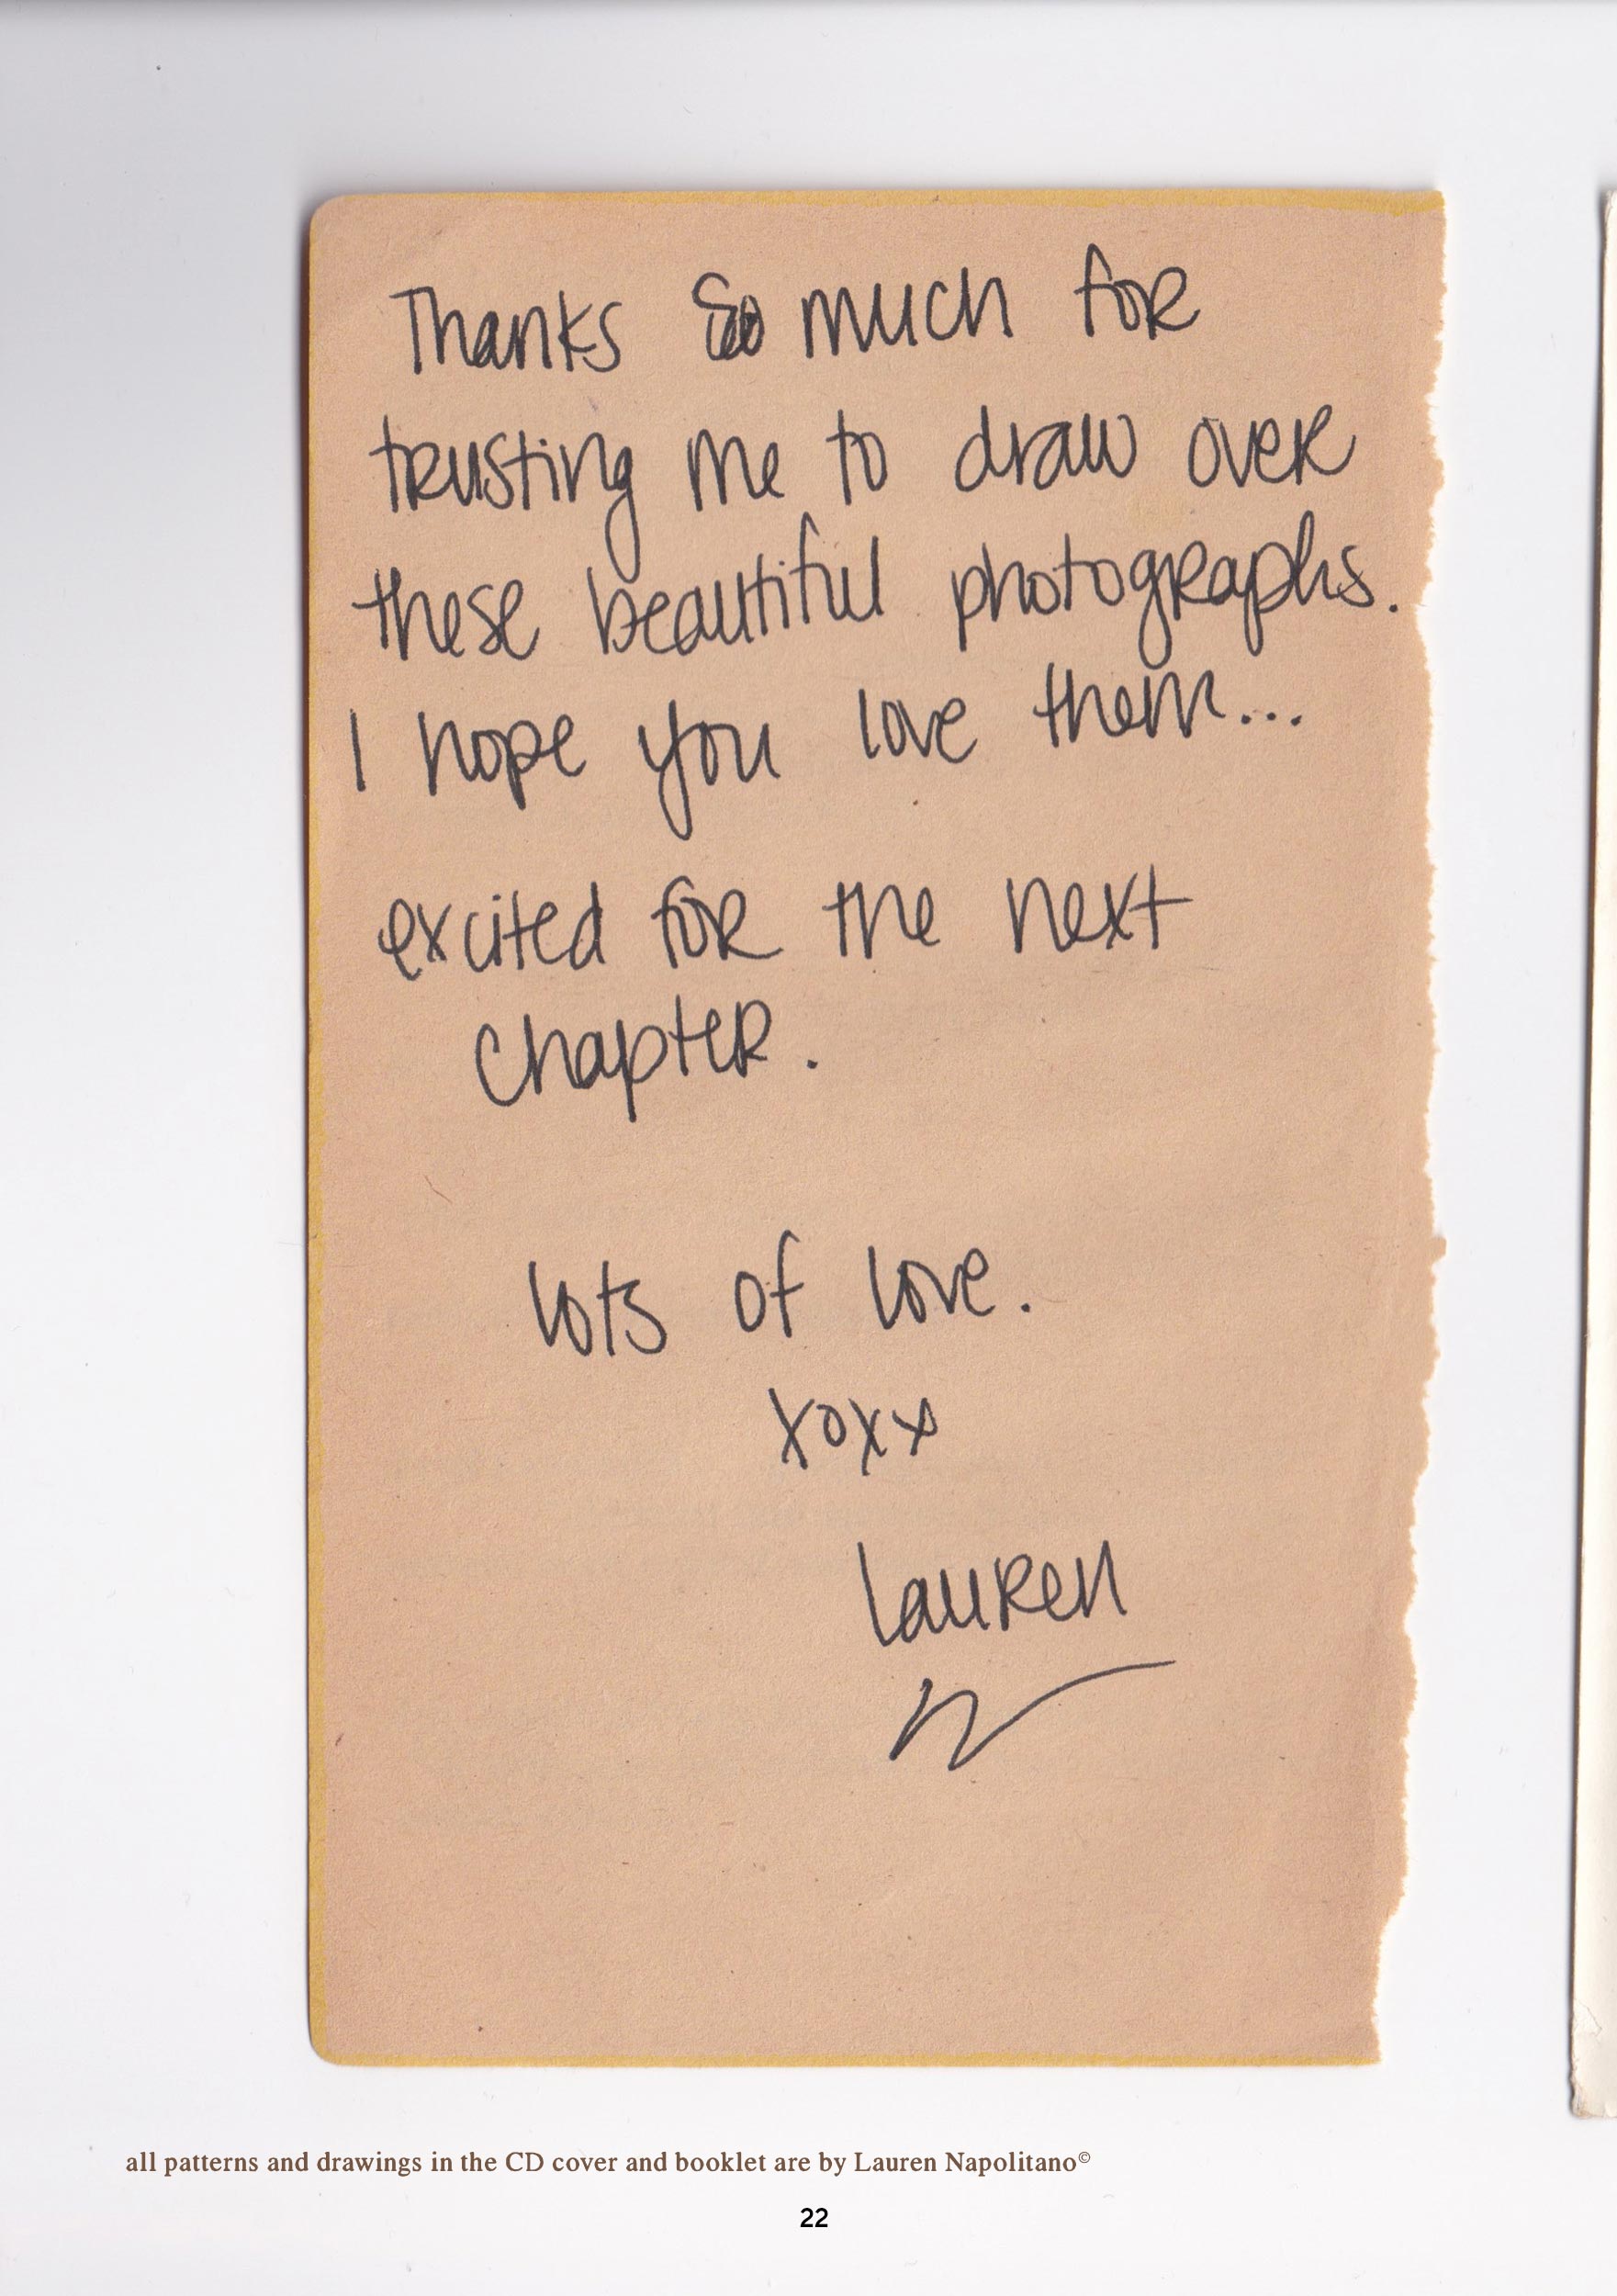 Thanks so much for
trusting me to draw over
these beautiful photographs.
I hope you love them...
excited for the next
chapter.
lots of love.
xoxx
Lauren
all patterns and drawings in the CD cover and booklet are by Lauren Napolitano©
22